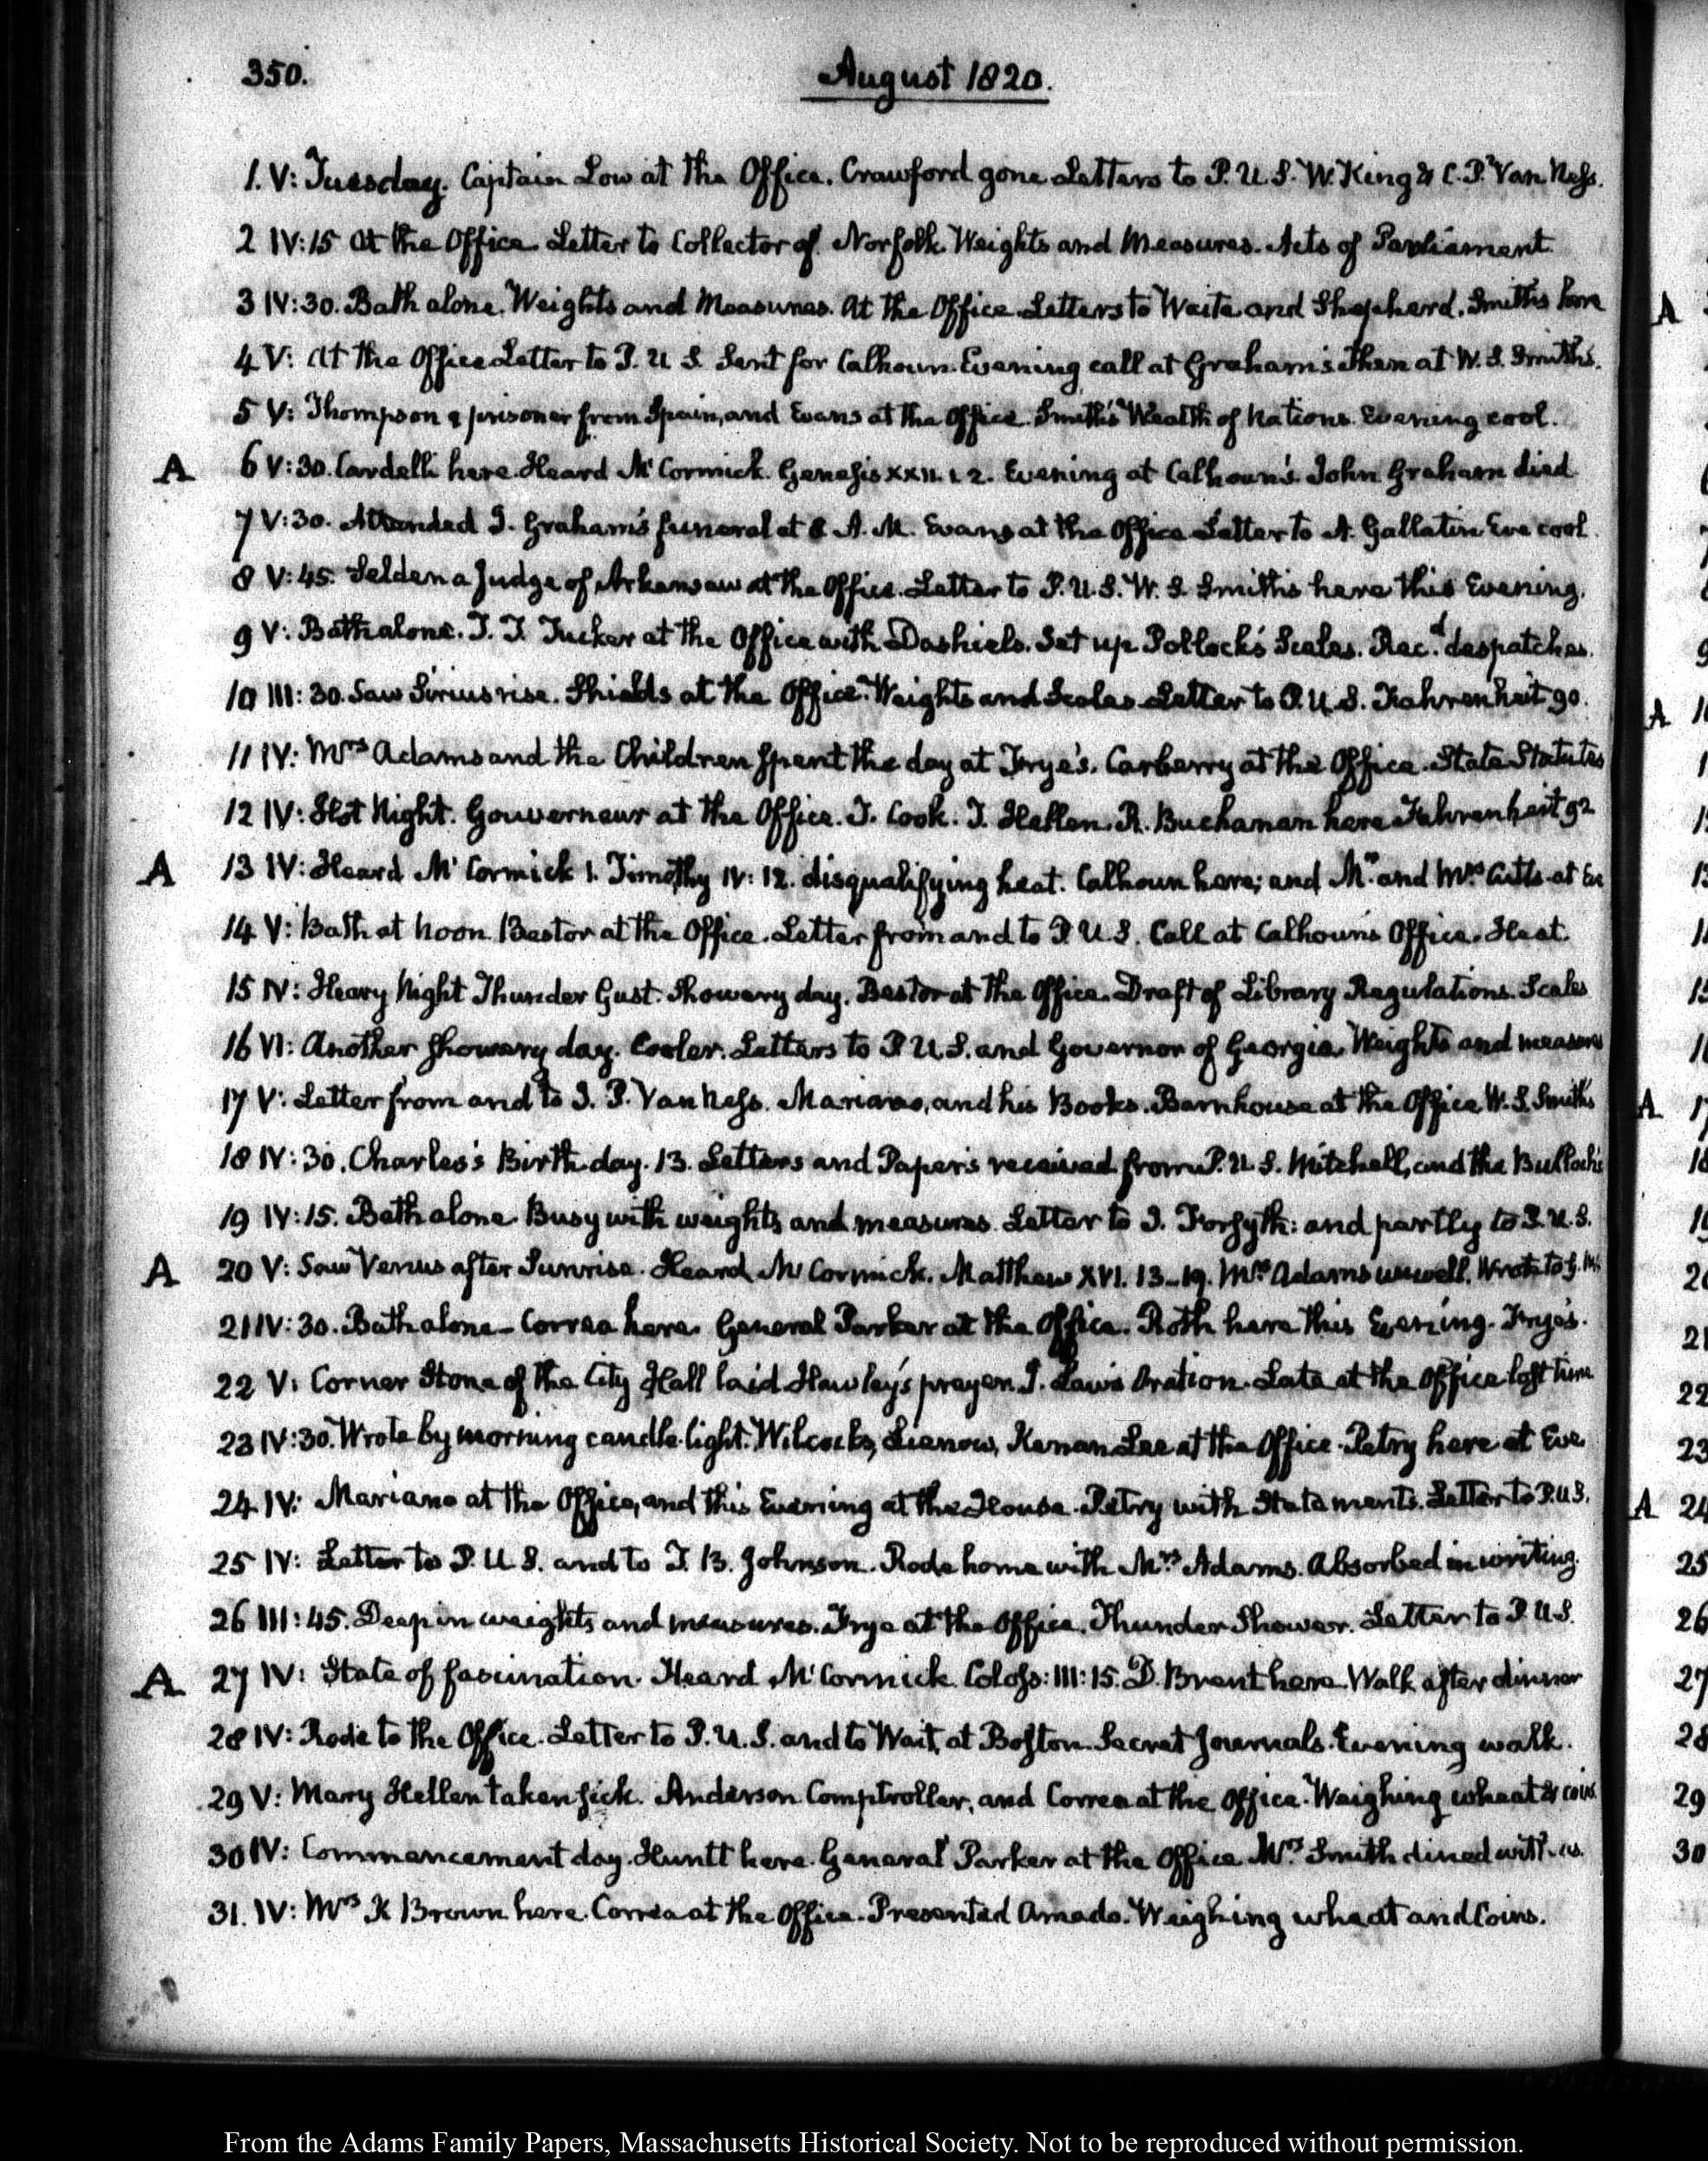 350.
August 1820.
1. V: Tuesday. Captain Low at the Office. Crawford gone Letters to P. U. S. W. King & C. P. Van Ness.
2 IV:15 At the Office Letter to Collector of Norfolk. Weights and Measures. Acts of Parliament
3 IV:30. Bath alone. Weights and Measures. At the Office. Letters to Waite and Shepherd. Smiths here
4 V: At the Office Letter to P. U S. Sent for Calhoun. Evening call at Graham's then at W. S. Smith's.
5 V: Thompson a prisoner from Spain, and Evans at the Office. Smith's Wealth of Nations. Evening cool.
A 6 V:30. Cardelli here. Heard McCormick. Genesis XXII. 1. 2. Evening at Calhoun's. John Graham died
7 V:30. Attended J. Graham's funeral at 8 A. M. Evans at the Office Letter to A. Gallatin Eve cool.
8 V:45. Selden a Judge of Arkansaw at the Office. Letter to P. U. S. W. S. Smith's here this Evening.
9 V: Bath alone. T. T. Tucker at the Office with Dashiels. Set up Pollock's Scales. Rec.d despatches.
10 III:30. Saw Sirius rise. Shields at the Office. Weights and Scales. Letter to P. U. S. Fahrenheit 90.
11 IV: Mrs Adams and the Children spent the day at Frye's. Carberry at the Office. State Statutes
12 IV: Hot Night. Gouverneur at the Office. J. Cook. J. Hellen. R. Buchanan here Fahrenheit 92
A 13 IV: Heard McCormick 1. Timothy IV: 12. disqualifying heat. Calhoun here; and Mr. and Mrs Cutts at Eve
14 V: Bath at Noon. Bestor at the Office. Letter from and to P. U. S. Call at Calhoun's Office. Heat.
15 IV: Heavy Night Thunder Gust. Showery day. Bestor at the Office. Draft of Library Regulations. Scales
16 VI: Another showery day. Cooler. Letters to P U. S. and Governor of Georgia. Weights and measures
17 V: Letter from and to J. P. Van Ness. Mariano, and his Books. Barnhouse at the Office W. S. Smith's
18 IV:30. Charles's Birth day. 13. Letters and Papers received from P. U. S. Mitchell, and the Bullock's
19 IV:15. Bath alone. Busy with weights and measures. Letter to J. Forsyth: and partly to P. U. S.
A 20 V: Saw Venus after Sunrise. Heard McCormick. Matthew XVI. 13-19. Mrs Adams unwell. Wrote to
21 IV:30. Bath alone - Correa here. General Parker at the Office. Roth here this Evening. Frye's.
22 V: Corner Stone of the City Hall laid Hawley's prayer. J. Law's Oration. Late at the Office lost time
23 IV:30. Wrote by morning candle-light. Wilcocks, Kenan Lee at the Office. Petry here at Eve
24 IV: Mariano at the Office, and this Evening at the House. Petry with Statements. Letter to P. U S.
25 IV: Letter to P. U S. and to F. B. Johnson. Rode home with Mrs Adams. Absorbed in writing.
26 III:45. Deep in weights and measures. Frye at the Office. Thunder Shower. Letter to P. U S.
A 27 IV: State of fascination. Heard McCormick. Coloss: III: 15. D. Brent here. Walk after dinner
28 IV: Rode to the Office. Letter to P. U. S. and to Wait, at Boston. Secret Journals. Evening walk.
29 V: Mary Hellen taken sick. Anderson Comptroller, and Correa at the Office. Weighing wheat & coins
30 IV: Commencement day. Huntt here. General Parker at the Office Mrs Smith dined with us.
31. IV: Mrs K Brown here. Correa at the Office. Presented Amado. Weighing wheat and Coins.
From the Adams Family Papers, Massachusetts Historical Society. Not to be reproduced without permission.